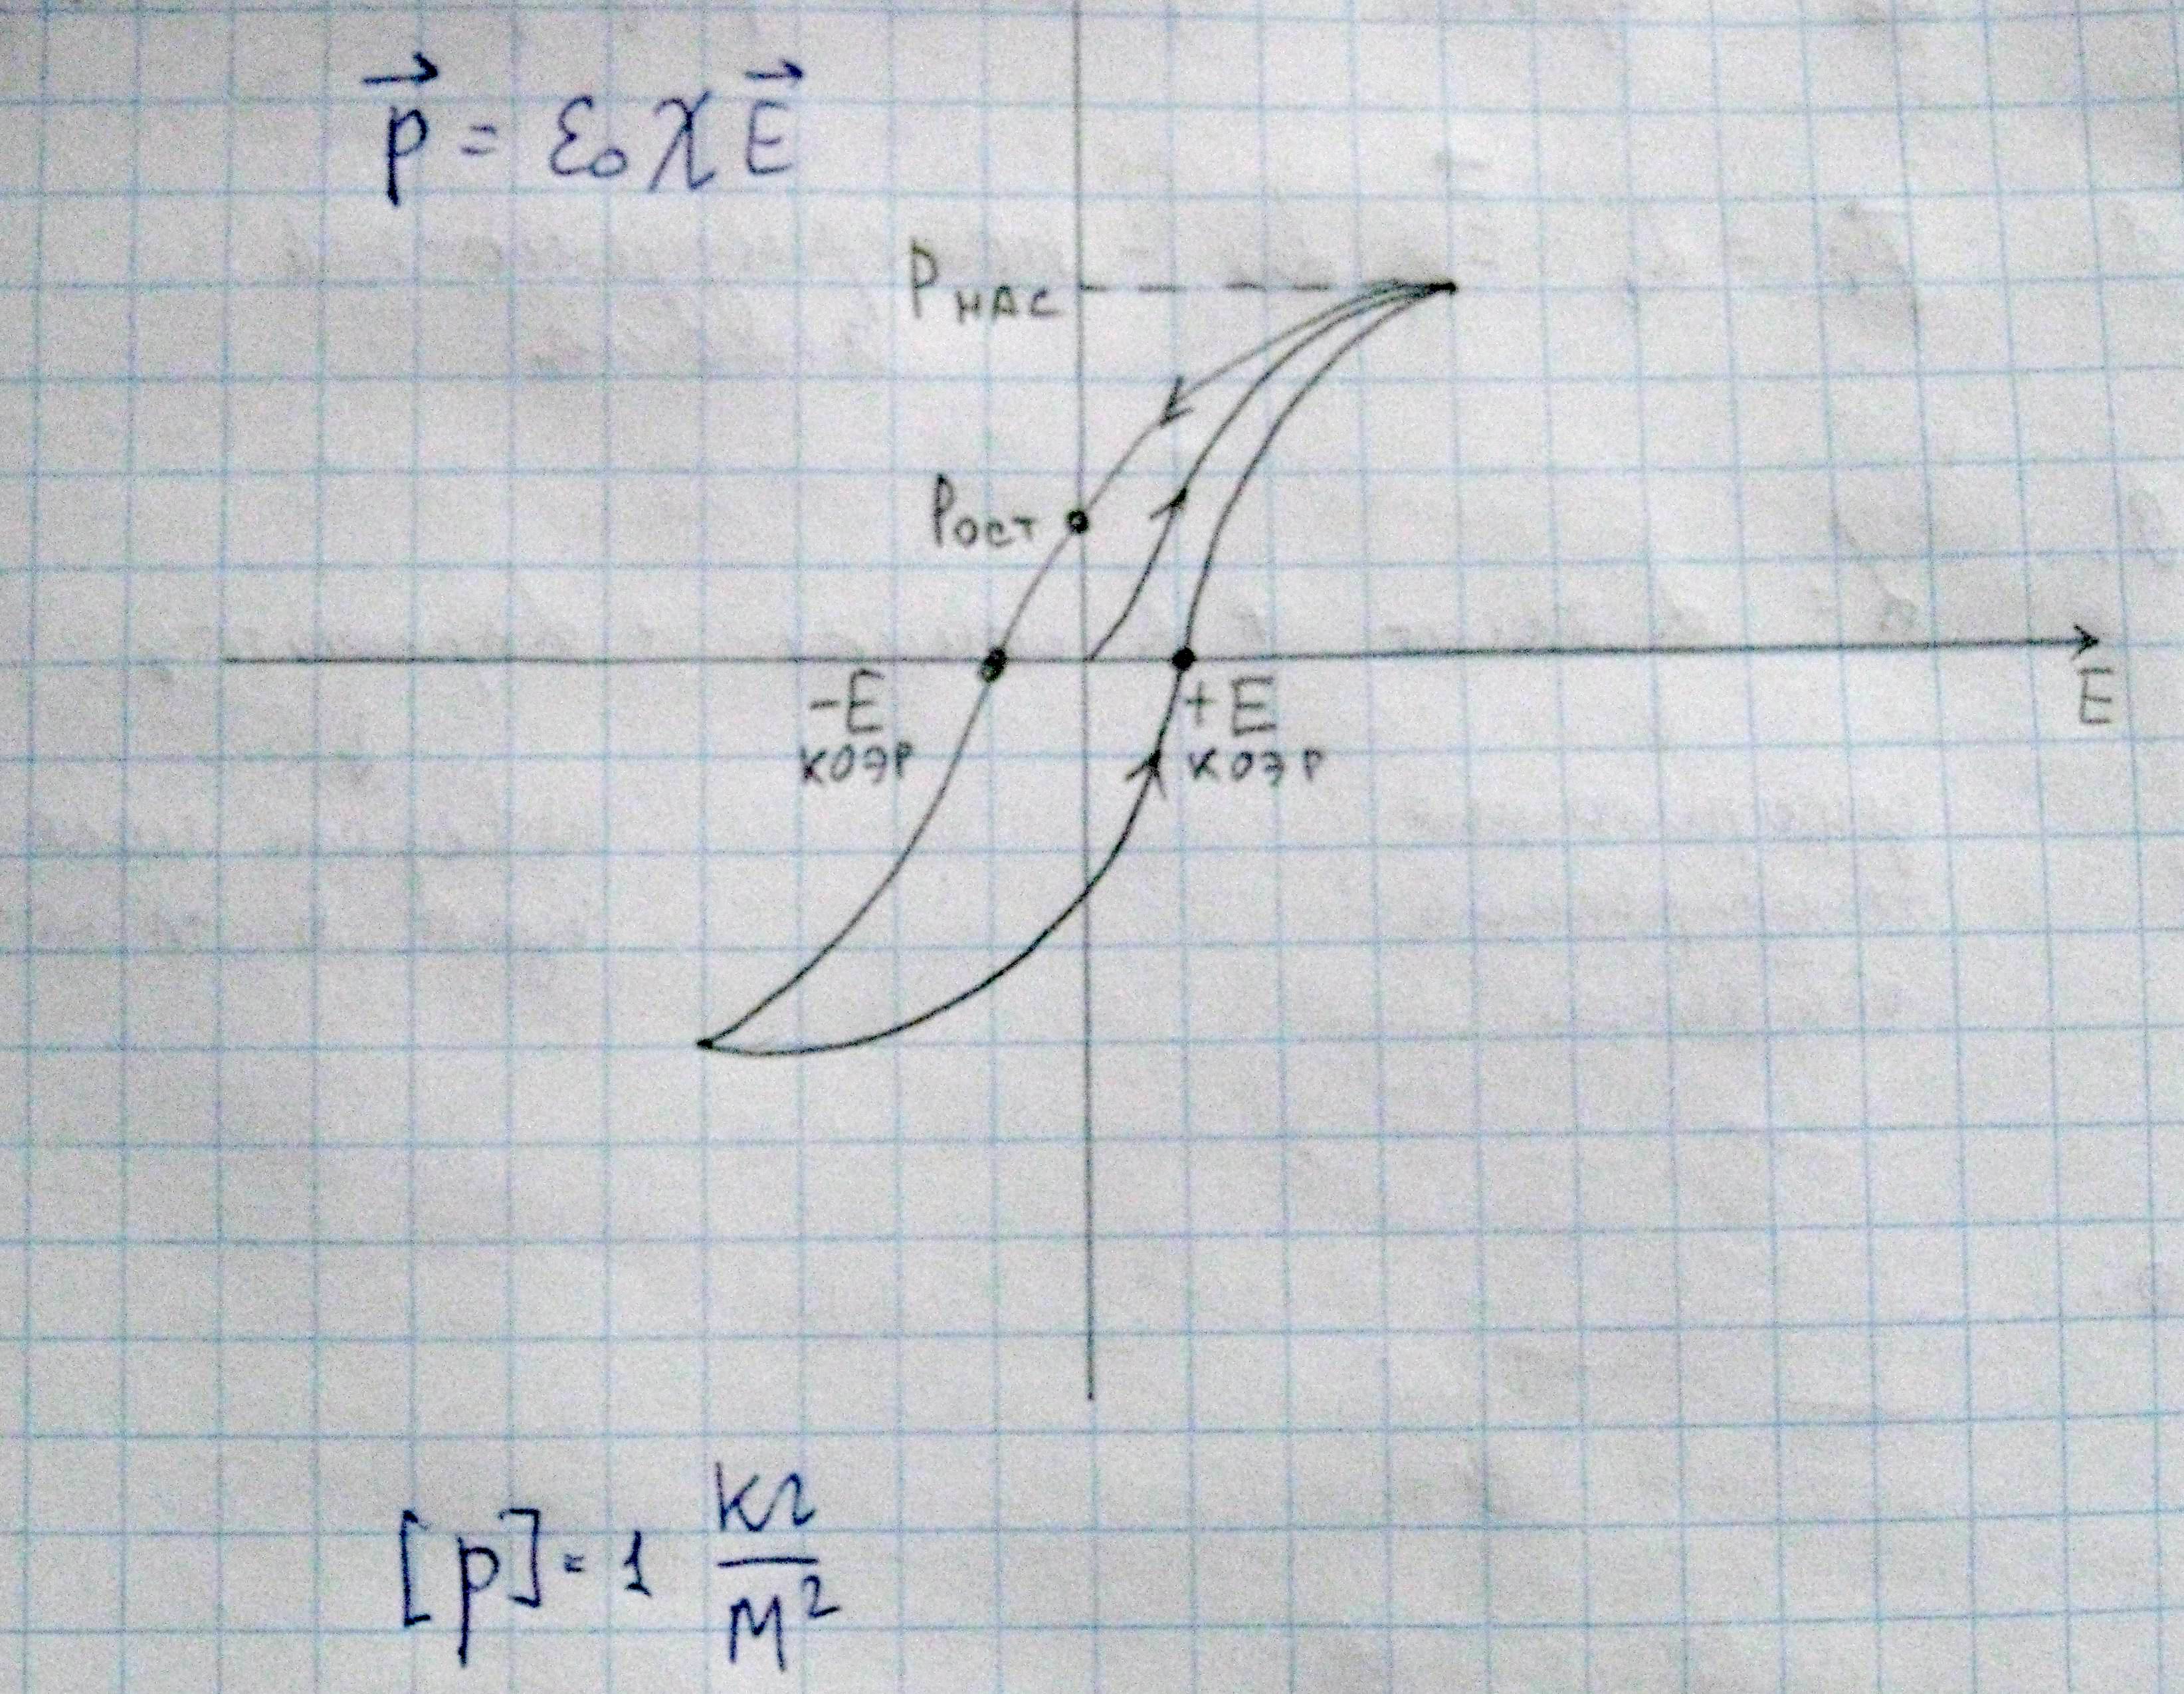 p⃗ = ε₀χE⃗
Pнас
Pост
-E
коэр
+E
коэр
E
[p]=1 кг/м²